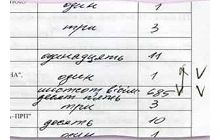 один 1
три 3
одинадцять 11
НА". один 1 √
шістсот вісім-
десят п'ять 685 √ √
три 3
-ПРІ" десять 10
один 1